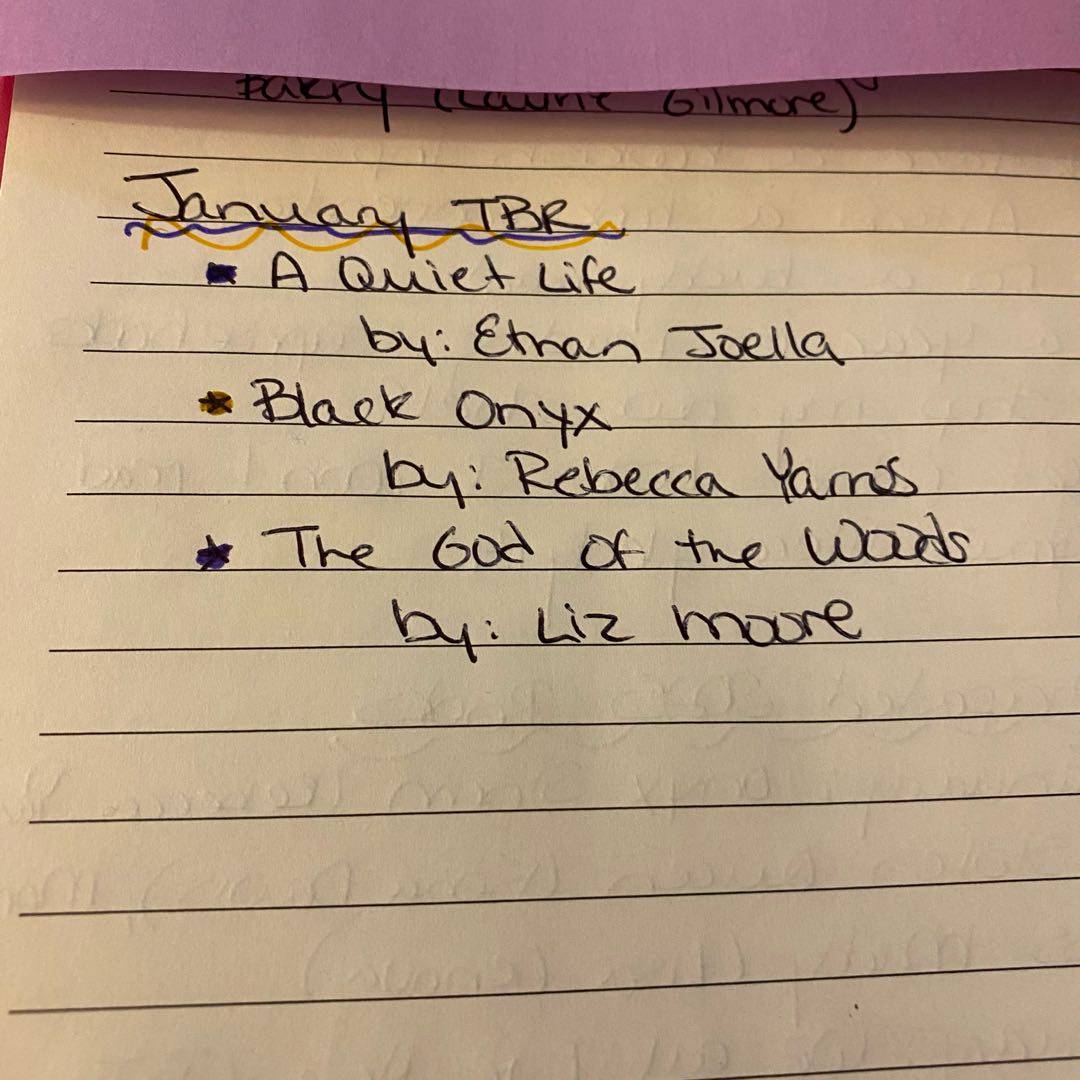 (Laurie Gilmore)
January TBR
A Quiet Life
by: Ethan Joella
Black Onyx
by: Rebecca Yarros
The God of the Woods
by: Liz Moore